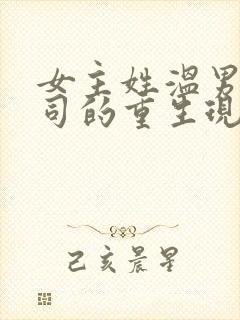 女主姓温男
司的重生现
己亥晨星